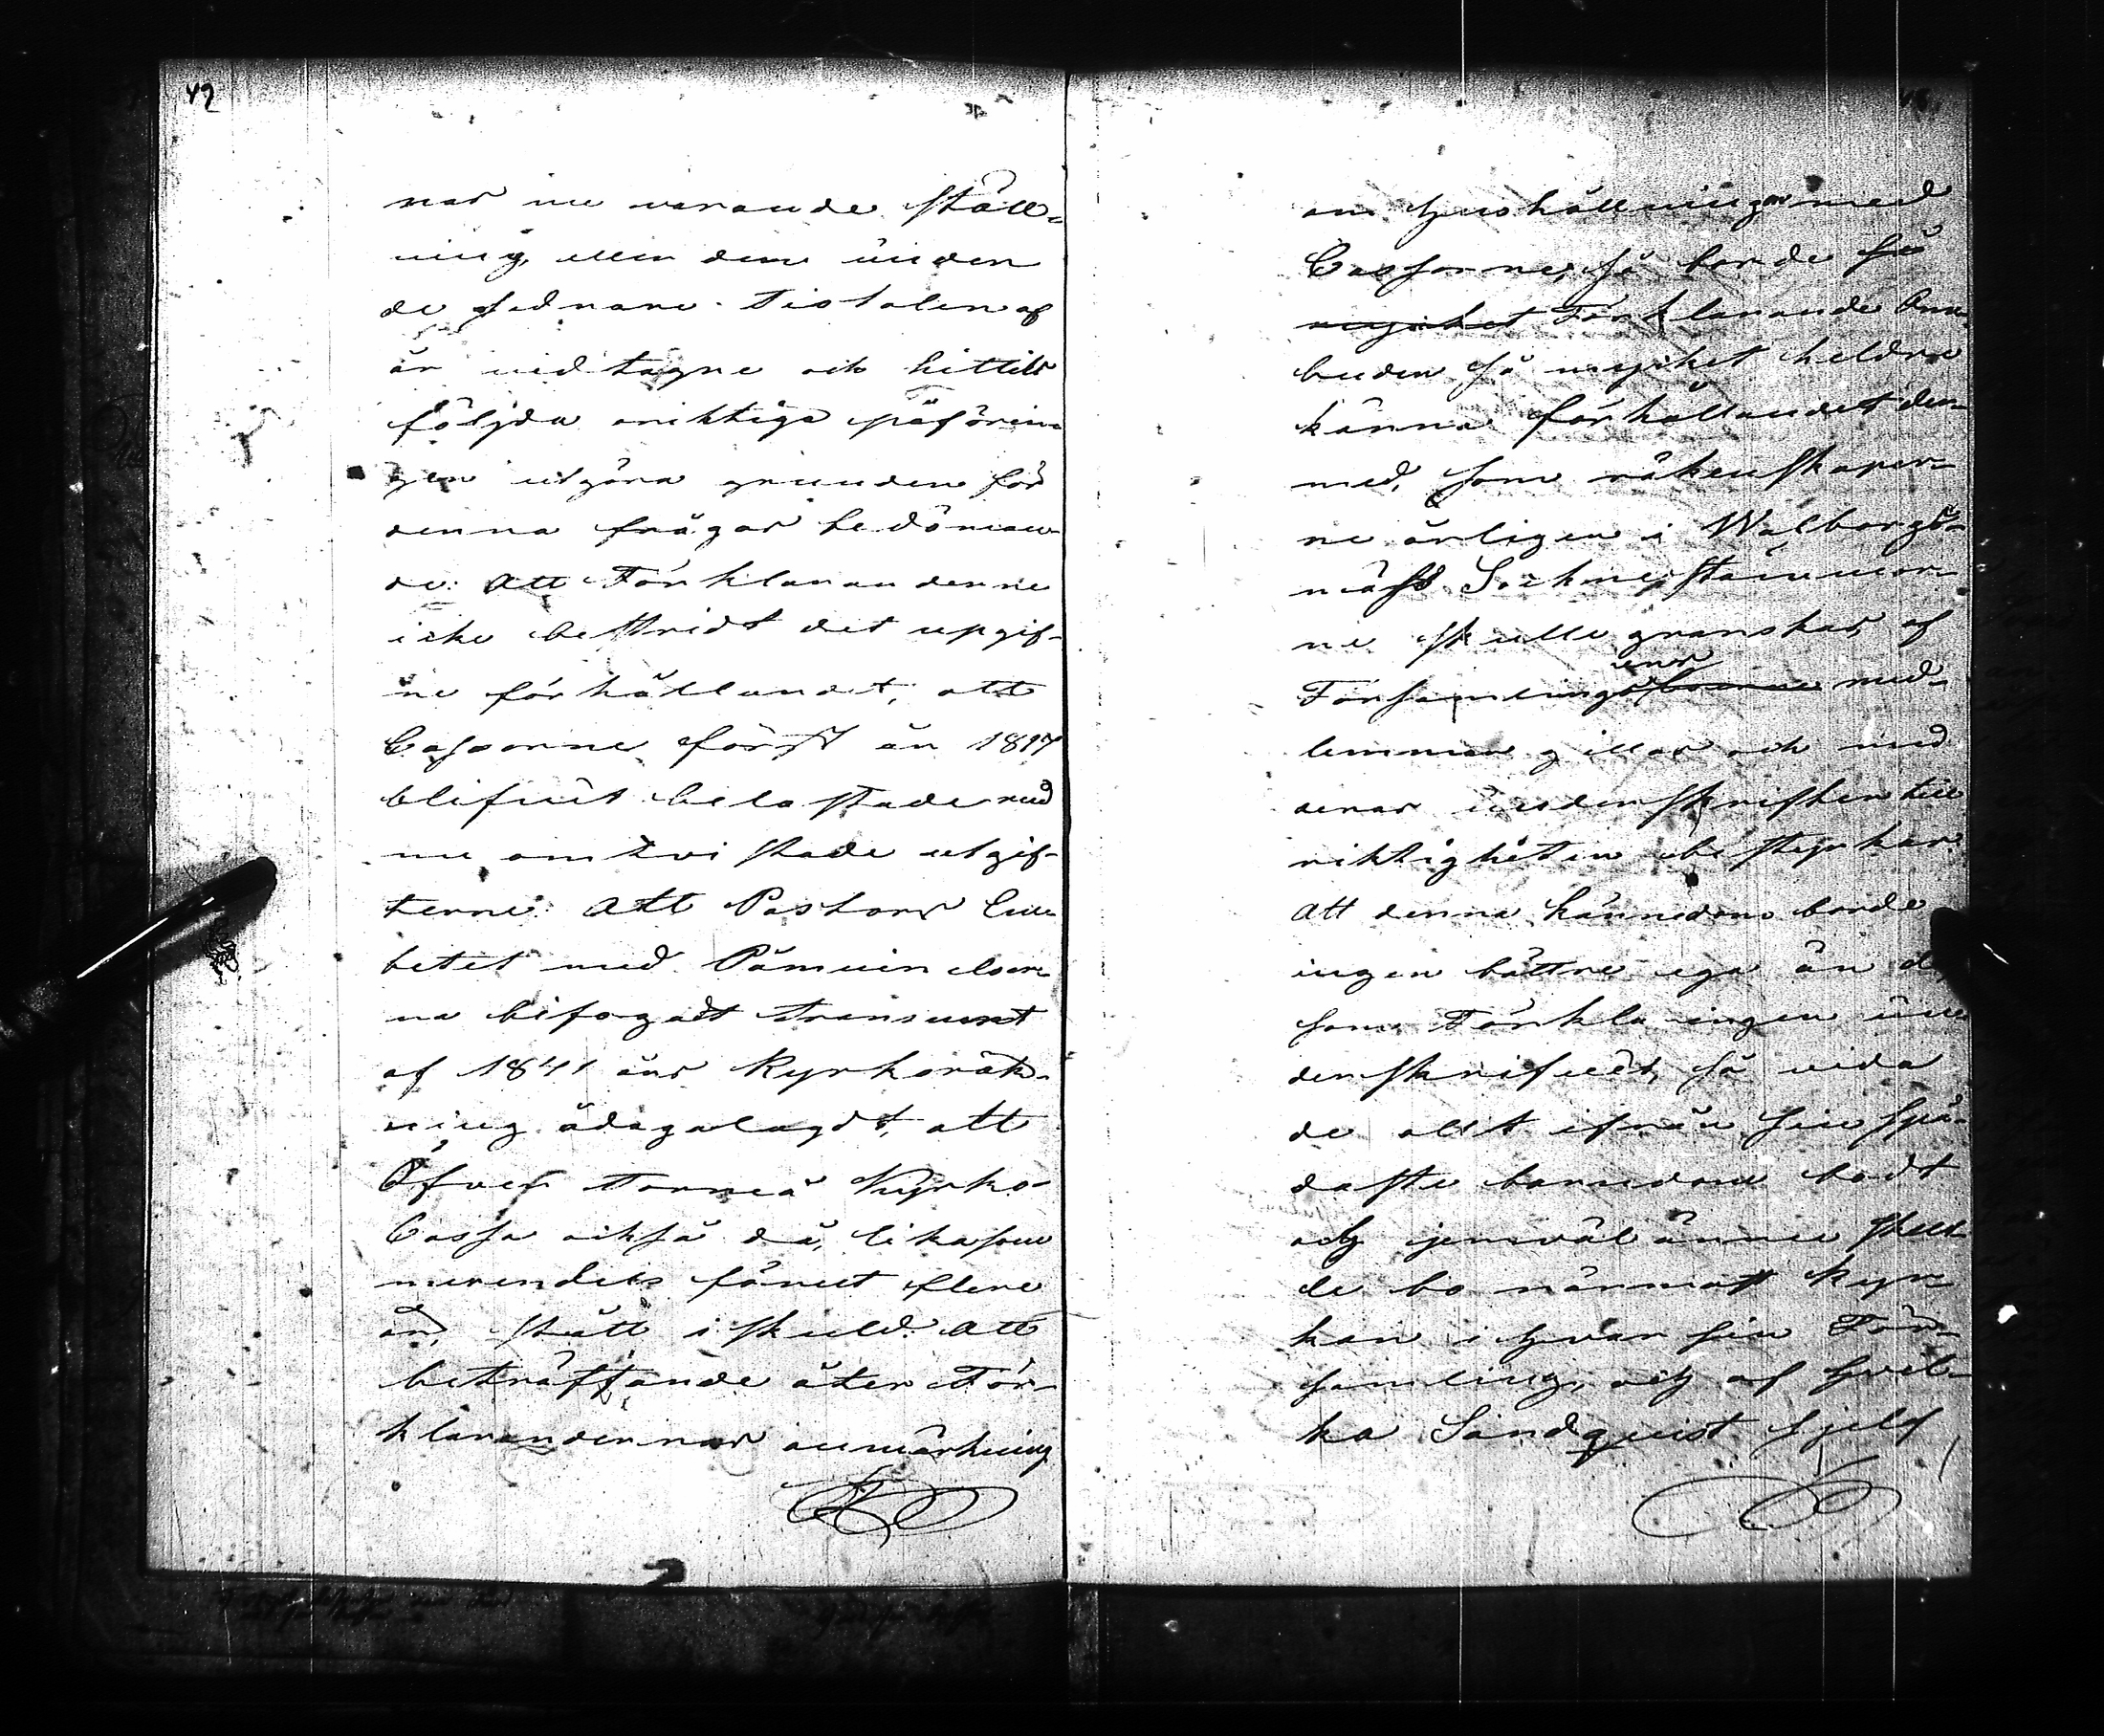 42
nas nu varande ställ-
ning, eller den under
de sednare Tiotalen af
år vidtagne och hittills
följda oriktiga påförin-
gen utgöra grunden för
denna frågas bedöman-
de: Att Förklaranderne
icke bestridt det uppgif-
ne förhållandet, att
Cassorne först år 1817
blifvit belastade med
nu omtvistade utgif-
terne: Att Pastors Em-
betet med Påminnelser-
na bifogadt transumt
af 1841 års Kyrkoräk-
ning ådagalagdt, att
Öfver Torneå Kyrko-
Cassa också då, likasom
merendels förut flere
år, stått i skuld: Att
beträffande åter För-
klarandernas anmärkning
om hushållningen med
Cassorne, så borde så
mycket Förklarande Om-
buden så mycket heldre
känna förhållandet der-
med, som räkenskaper-
ne årligen i Walborgs-
mäss Sockne stämmor-
ne skulle granskas, af
Församlings boerne med-
ens
lemmar gillas och med
deras underskrifter till
riktigheten bestyrkas
Att denna kännedom borde
ingen bättre ega än de,
som Förklaringen un-
derskrifvit, så vida
de allt ifrån sin spä-
daste barndom bodt
och jemväl ännu skul-
le bo närmast Kyr-
kan i hvar sin För-
samling, och af hvil-
ka Sandquist sjelf